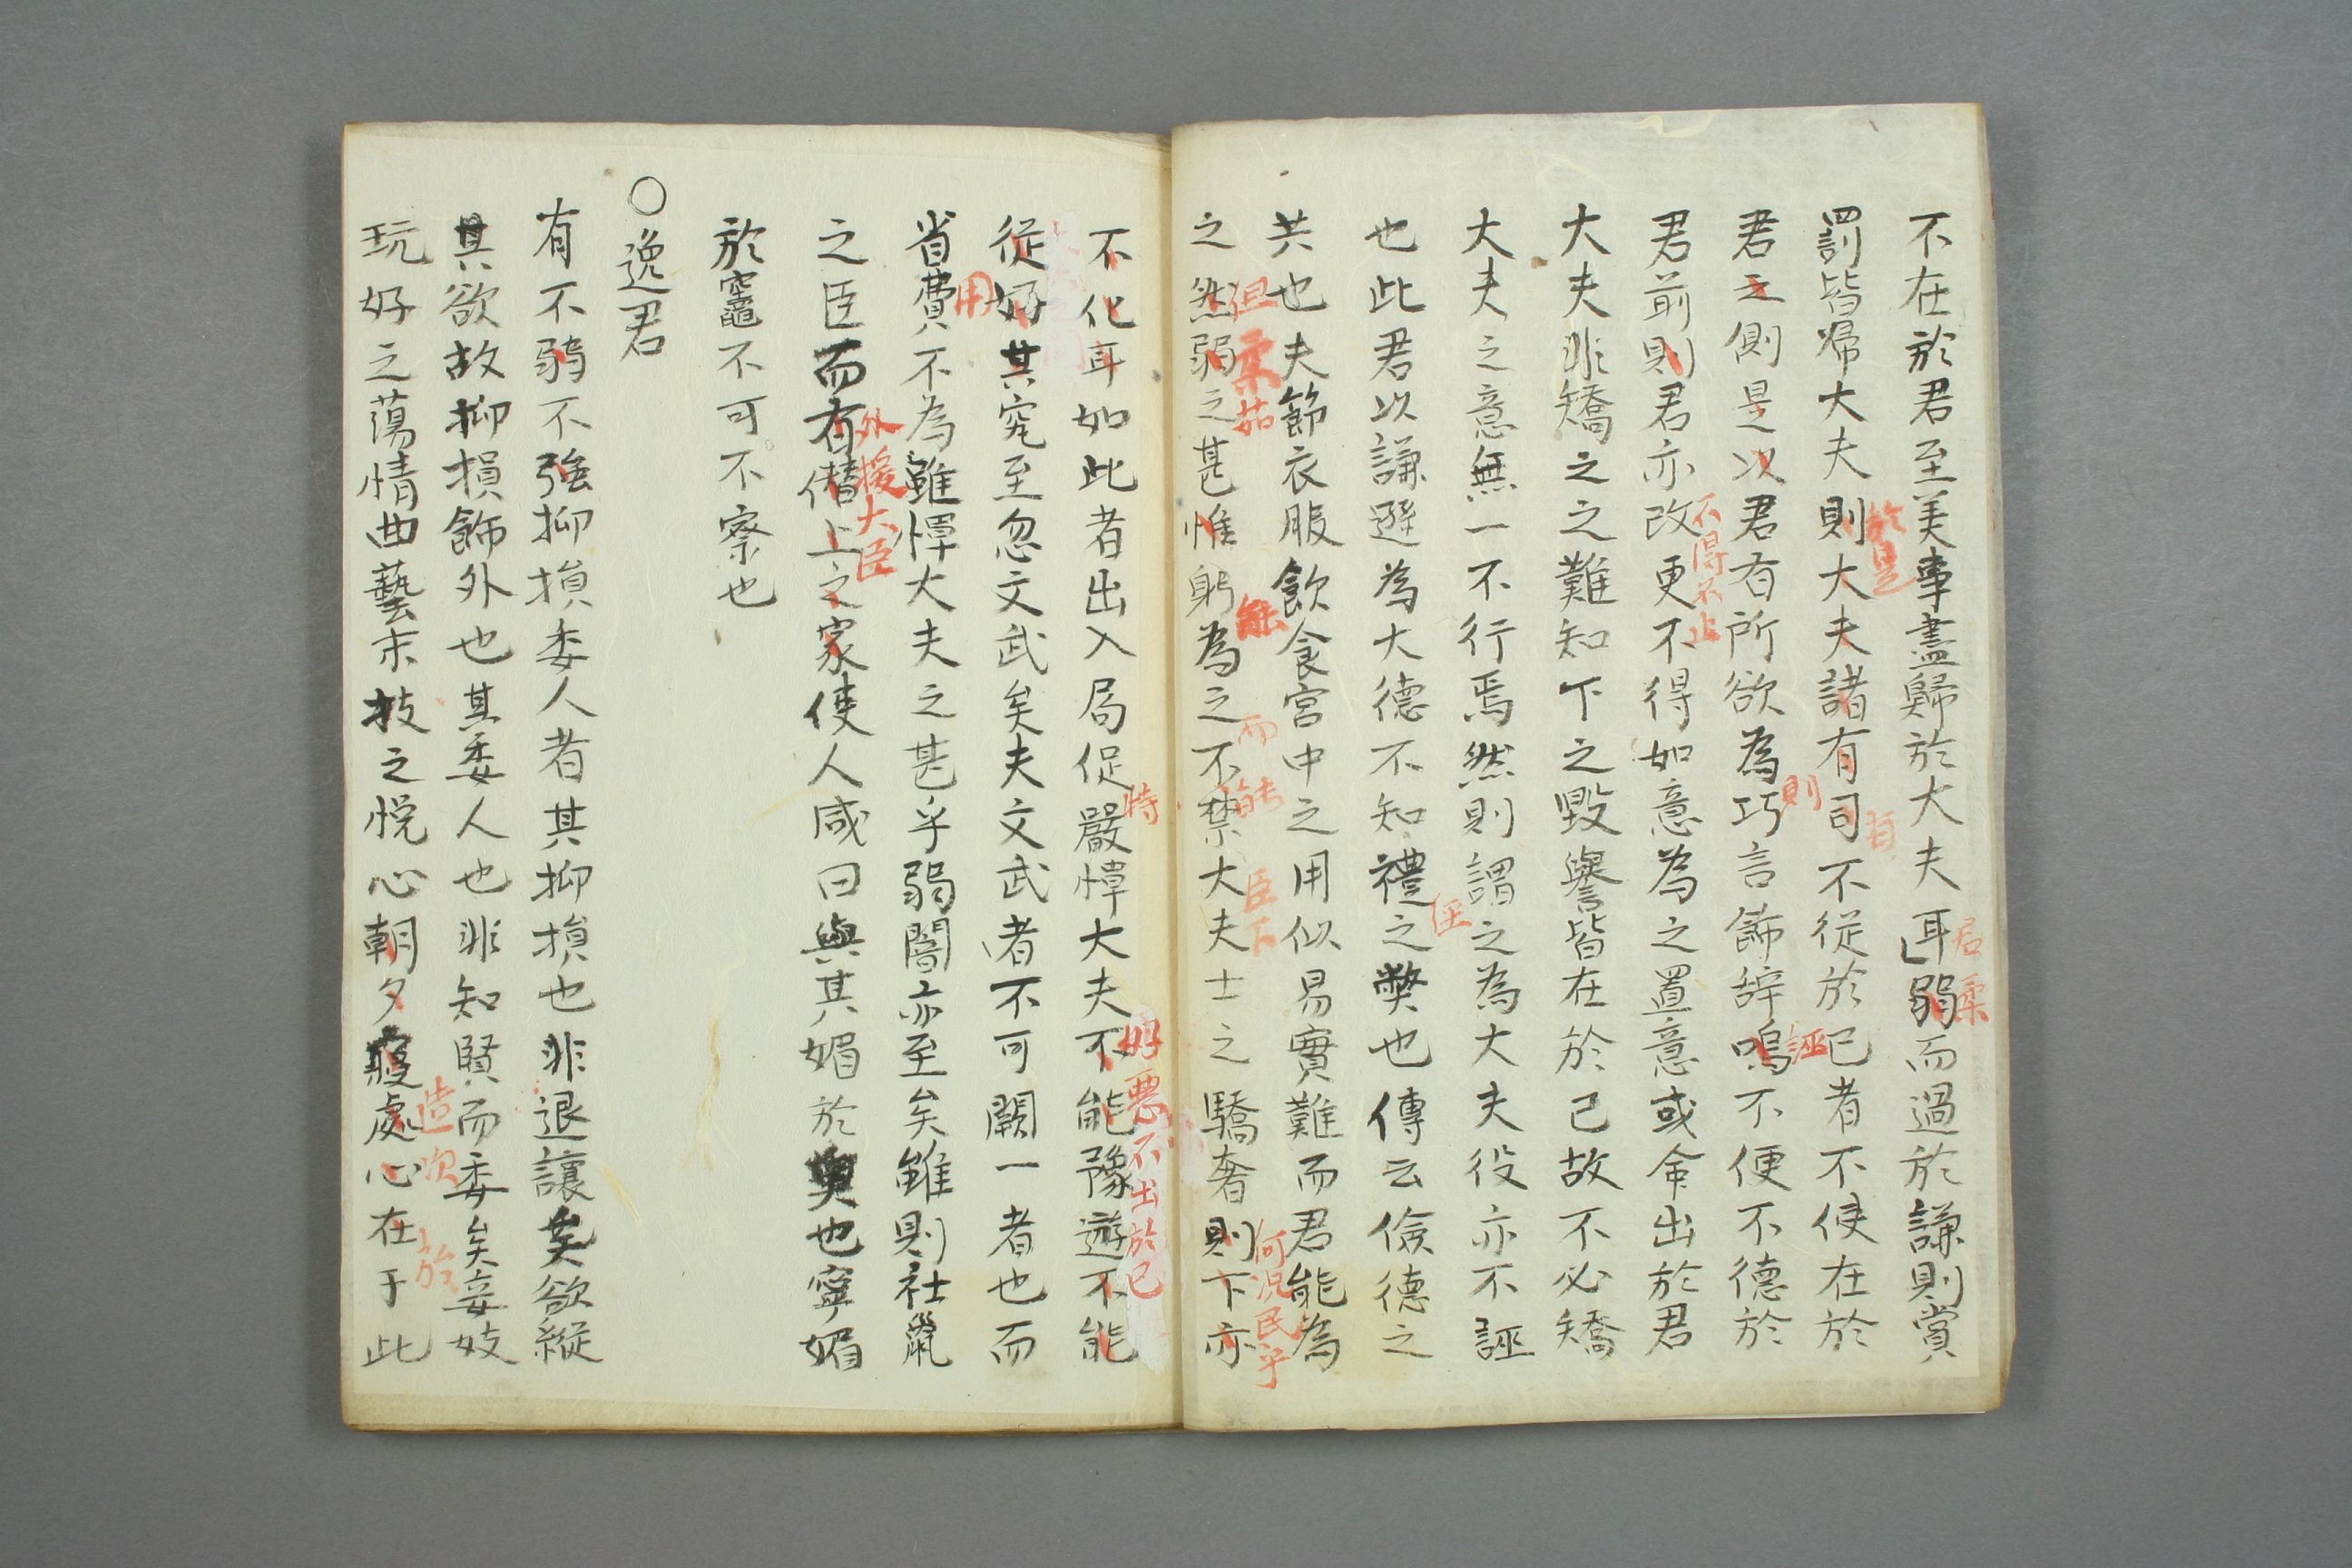 不在於君至美事盡歸於大夫耳弱而過於謙則賞
君柔
罰皆帰大夫則大夫諸有司不従於己者不使在於
於是
君之側是以君有所欲為巧言飾辞嗚不便不德於
則
誣
君前則君亦改更不得如意為之置意或命出於君
不得不止
大夫非矯之之難知下之毀譽皆在於己故不必矯
大夫之意無一不行焉然則謂之為大夫役亦不誣
也此君以謙避為大德不知禮之弊也傳云儉德之
共也夫節衣服飲食宮中之用似易實難而君能為
之然弱之甚惟躬為之不禁大夫士之驕奢則下亦
但柔茹
能
而
臣下
何況民乎
不化耳如此者出入局促嚴憚大夫不能豫遊不能
特
好悪不出於己
従好其究至忽文武矣夫文武者不可闕一者也而
用
省費不為雖憚大夫之甚乎弱闇亦至矣雖則社鼠
之臣而有僭上之家使人咸曰與其媚於奧也寧媚
外援大臣
於竈不可不察也
○逸君
有不弱不強抑損委人者其抑損也非退讓矣欲縦
其欲故抑損飾外也其委人也非知賢而委矣妾妓
造次
於
玩好之蕩情曲藝末技之悦心朝夕寢處心在于此